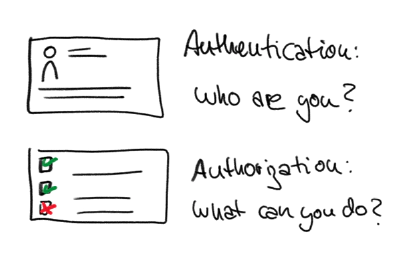 Authentication:
who are you?
Authorization:
What can you do?